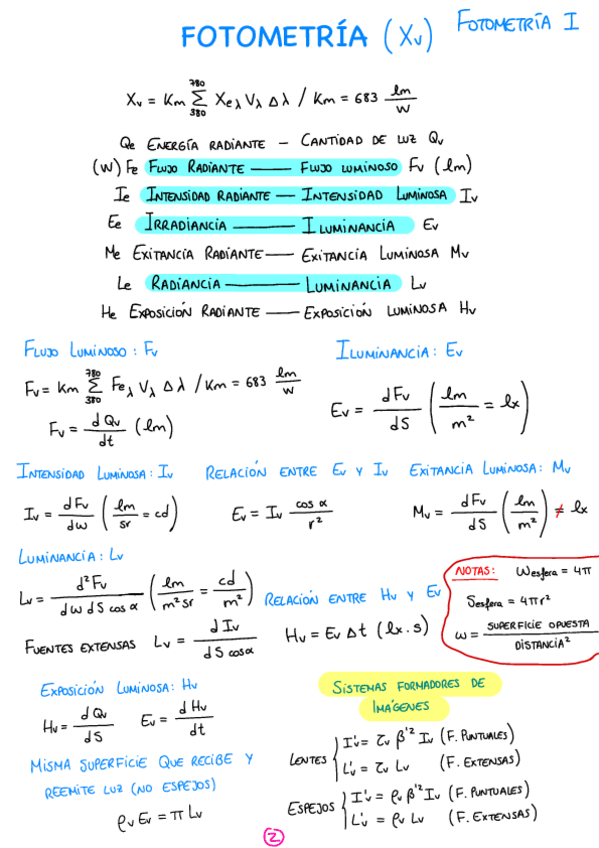 FOTOMETRÍA (Xv)
FOTOMETRÍA I
Xv = Km Σ 780 380 Xeλ Vλ Δλ / Km = 683 lm/W
Qe ENERGÍA RADIANTE – CANTIDAD DE LUZ Qv
(W) Fe FLUJO RADIANTE — FLUJO LUMINOSO Fv (lm)
Ie INTENSIDAD RADIANTE – INTENSIDAD LUMINOSA Iv
Ee IRRADIANCIA — ILUMINANCIA Ev
Me EXITANCIA RADIANTE — EXITANCIA LUMINOSA Mv
Le RADIANCIA — LUMINANCIA Lv
He EXPOSICIÓN RADIANTE — EXPOSICIÓN LUMINOSA Hv
FLUJO LUMINOSO: Fv
Fv = Km Σ 780 380 Feλ Vλ Δλ / Km = 683 lm/W
Fv = dQv/dt (lm)
ILUMINANCIA: Ev
Ev = dFv/dS (lm/m² = lx)
INTENSIDAD LUMINOSA: Iv
Iv = dFv/dω (lm/sr = cd)
RELACIÓN ENTRE Ev Y Iv
Ev = Iv cos α/r²
EXITANCIA LUMINOSA: Mv
Mv = dFv/dS (lm/m²) ≠ lx
LUMINANCIA: Lv
Lv = d²Fv/dω dS cos α (lm/m² sr = cd/m²)
FUENTES EXTENSAS Lv = dIv/dS cos α
RELACIÓN ENTRE Hv Y Ev
Hv = Ev Δt (lx.s)
NOTAS: Wesfera = 4π
Sesfera = 4πr²
ω = SUPERFICIE OPUESTA/DISTANCIA²
EXPOSICIÓN LUMINOSA: Hv
Hv = dQv/dS Ev = dHv/dt
MISMA SUPERFICIE QUE RECIBE Y
REEMITE LUZ (NO ESPEJOS)
ρv Ev = π Lv
SISTEMAS FORMADORES DE
IMÁGENES
LENTES { I'v = τv β'² Iv (F. PUNTUALES)
L'v = τv Lv (F. EXTENSAS)
ESPEJOS { I'v = ρv β'² Iv (F. PUNTUALES)
L'v = ρv Lv (F. EXTENSAS)
2